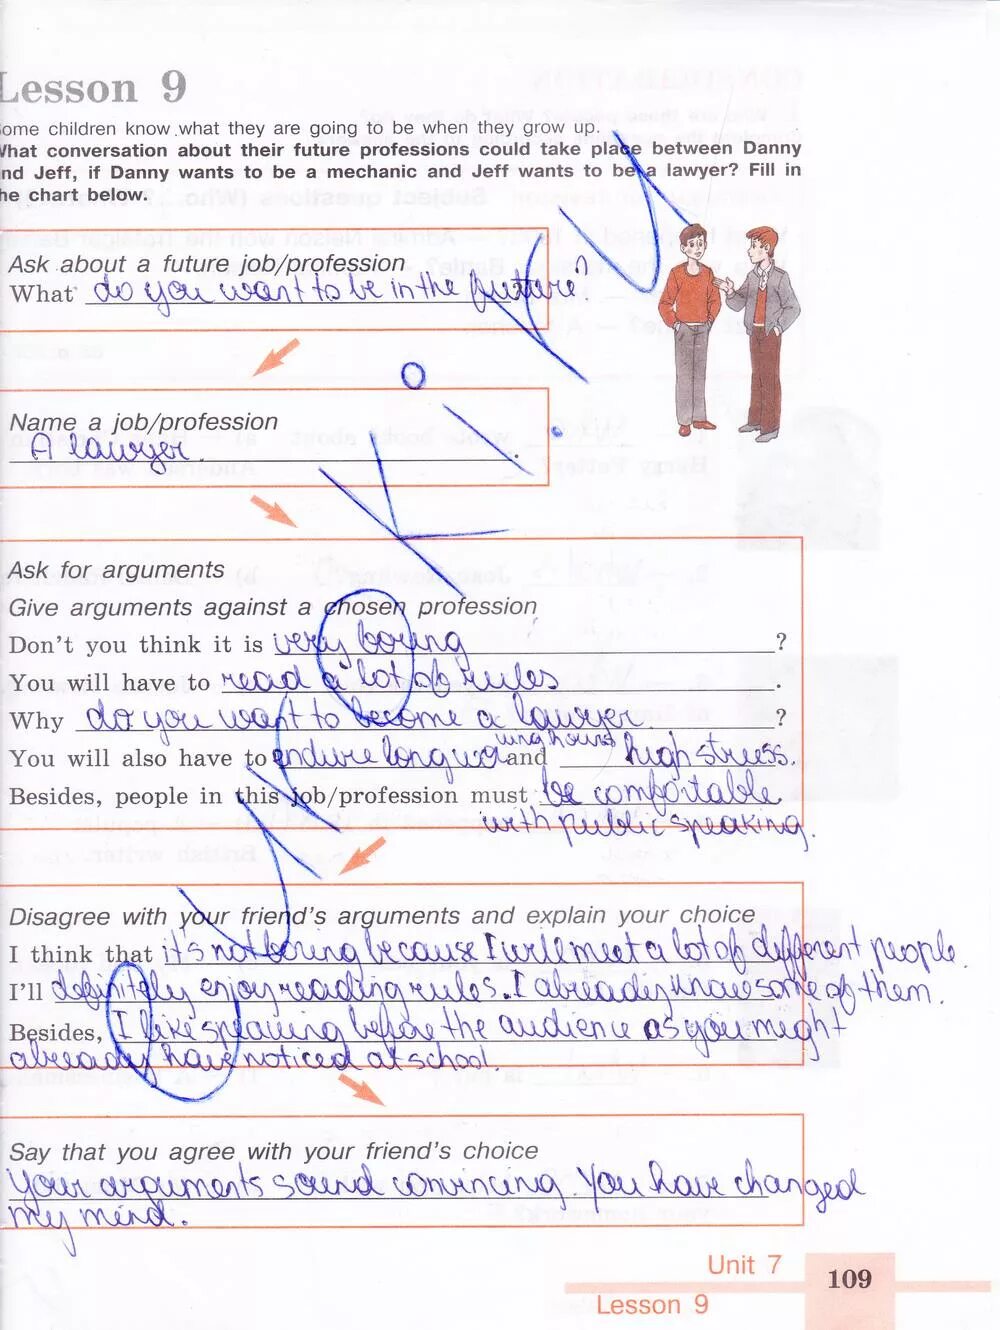 Lesson 9
ome children know what they are going to be when they grow up.
What conversation about their future professions could take place between Danny
nd Jeff, if Danny wants to be a mechanic and Jeff wants to be a lawyer? Fill in
he chart below.
Ask about a future job/profession
What do you want to be in the future?
Name a job/profession
A lawyer.
Ask for arguments
Give arguments against a chosen profession
Don't you think it is very boring ?
You will have to read a lot of rules .
Why do you want to become a lawyer ?
You will also have to endure long working hours and high stress.
Besides, people in this job/profession must be comfortable
with public speaking.
Disagree with your friend's arguments and explain your choice
I think that it's not boring because I will meet a lot of different people.
I'll definitely enjoy reading rules. I already know some of them.
Besides, I like speaking before the audience as you might
already have noticed at school.
Say that you agree with your friend's choice
Your arguments sound convincing. You have changed
my mind.
Unit 7
Lesson 9
109